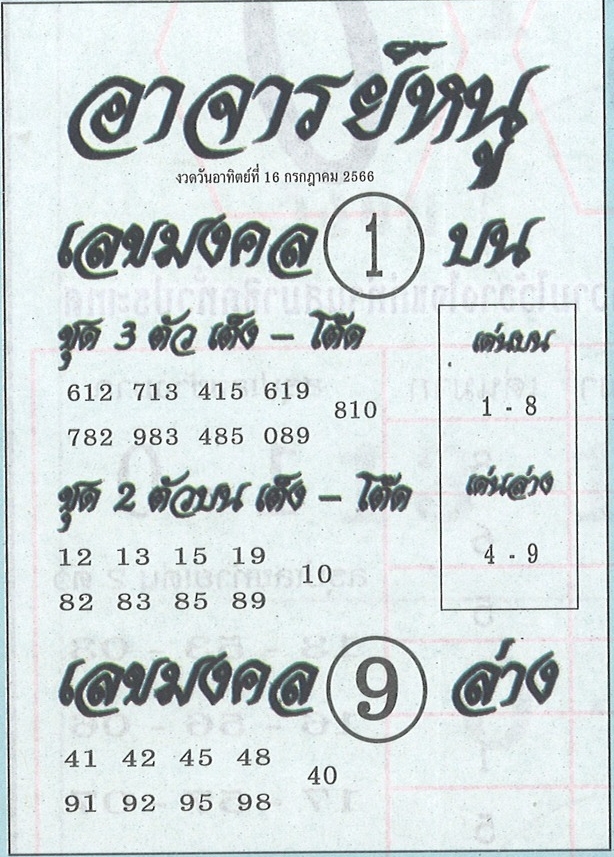 อาจารย์หนู
งวดวันอาทิตย์ที่ 16 กรกฎาคม 2566
เลขมงคล 1 บน
ชุด 3 ตัว เต็ง – โต๊ด
612 713 415 619
810
782 983 485 089
เด่นบน
1 - 8
ชุด 2 ตัวบน เต็ง – โต๊ด
12 13 15 19
10
82 83 85 89
เด่นล่าง
4 - 9
เลขมงคล 9 ล่าง
41 42 45 48
40
91 92 95 98